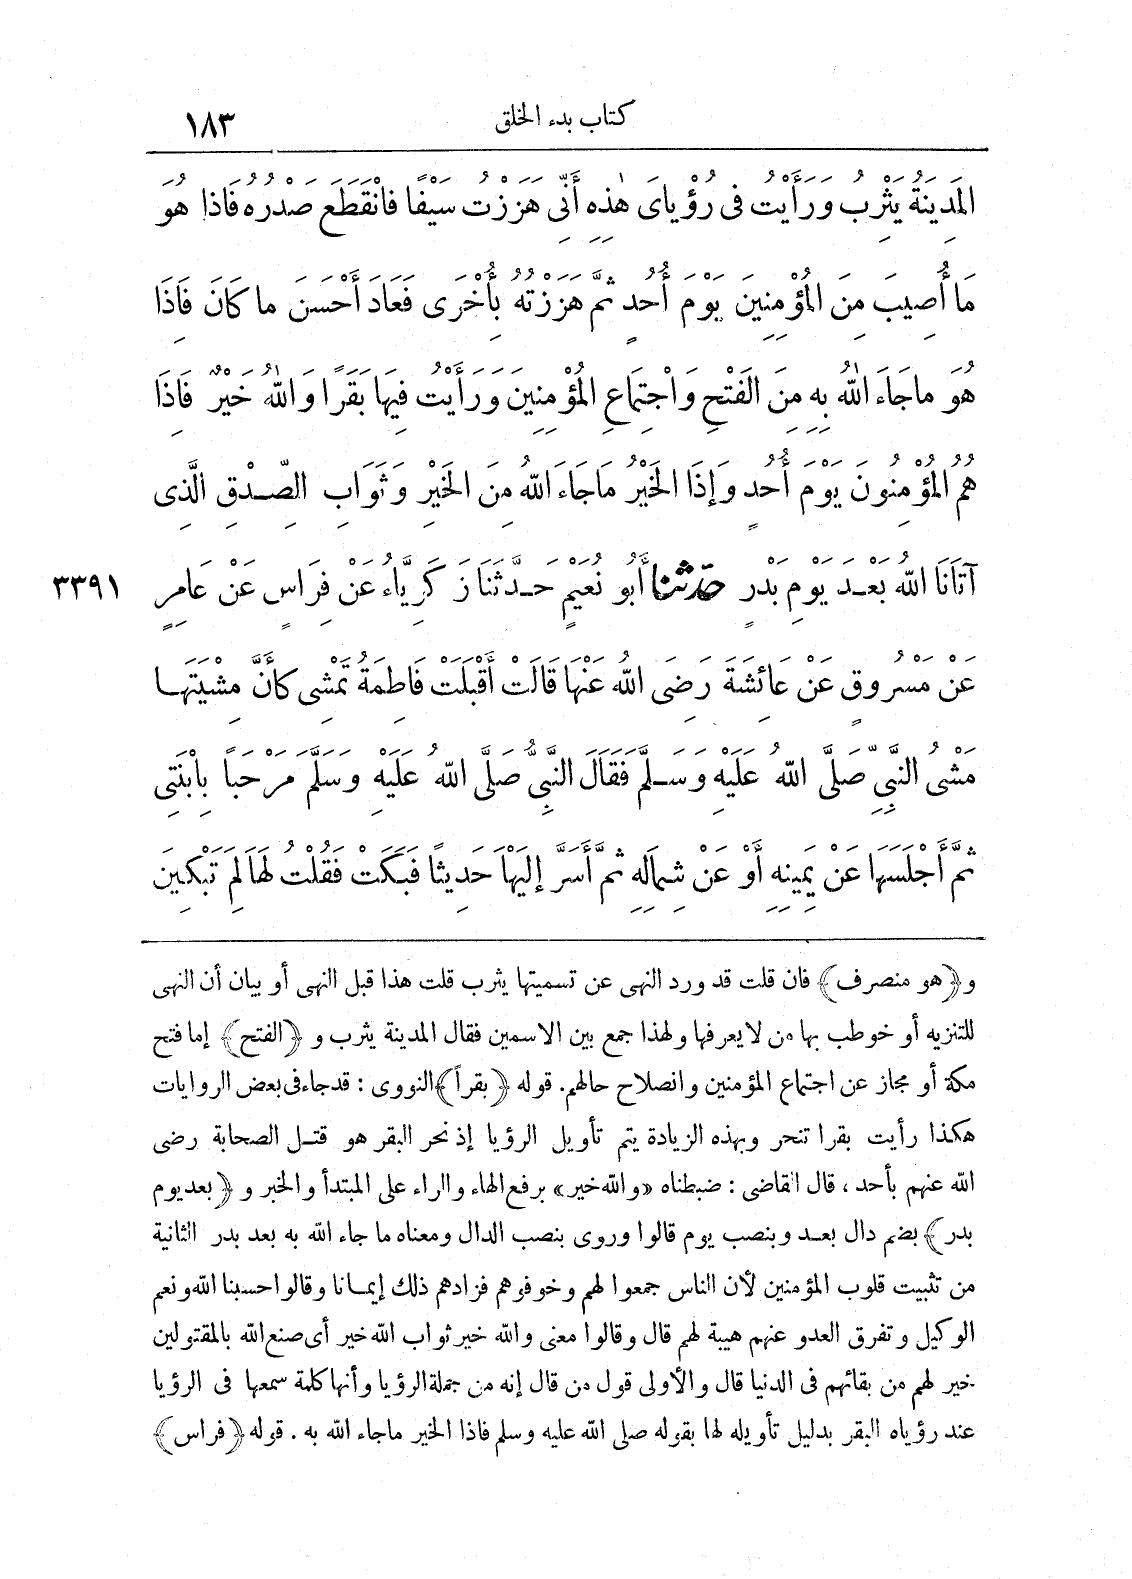 كتاب بدء الخلق ١٨٣
المَدِينَةُ يَثْرِبُ وَرَأَيْتُ فى رُؤْيَاىَ هٰذِهِ أَنِّى هَزَزْتُ سَيْفًا فَانْقَطَعَ صَدْرُهُ فَاذا هُوَ
مَا أُصِيبَ مِنَ المُؤْمِنِينَ يَوْمَ أُحُدٍ ثُمَّ هَزَزْتُهُ بِأُخْرَى فَعَادَ أَحْسَنَ ما كَانَ فَاذَا
هُوَ ما جَاءَ اللّٰهُ بِهِ مِنَ الفَتْحِ وَاجْتِمَاعِ المُؤْمِنِينَ وَرَأَيْتُ فِيهَا بَقَرًا وَاللّٰهُ خَيْرٌ فَاذَا
هُمُ المُؤْمِنُونَ يَوْمَ أُحُدٍ وَإِذَا الخَيْرُ مَا جَاءَ اللّٰهُ مِنَ الخَيْرِ وَثَوَابِ الصِّدْقِ الَّذِى
آتَانَا اللّٰهُ بَعْدَ يَوْمِ بَدْرٍ حَدَّثَنَا أَبُو نُعَيْمٍ حَدَّثَنَا زَكَرِيَّاءُ عَنْ فِرَاسٍ عَنْ عَامِرٍ ٣٣٩١
عَنْ مَسْرُوقٍ عَنْ عَائِشَةَ رَضِىَ اللّٰهُ عَنْهَا قَالَتْ أَقْبَلَتْ فَاطِمَةُ تَمْشِى كَأَنَّ مِشْيَتَهَا
مَشْىُ النَّبِىِّ صَلَّى اللّٰهُ عَلَيْهِ وَسَلَّمَ فَقَالَ النَّبِىُّ صَلَّى اللّٰهُ عَلَيْهِ وَسَلَّمَ مَرْحَباً بِابْنَتِى
ثُمَّ أَجْلَسَهَا عَنْ يَمِينِهِ أَوْ عَنْ شِمَالِهِ ثُمَّ أَسَرَّ إِلَيْهَا حَدِيثًا فَبَكَتْ فَقُلْتُ لَهَا لِمَ تَبْكِينَ
و﴿هو منصرف﴾ فان قلت قد ورد النهى عن تسميتها يثرب قلت هذا قبل النهى أو بيان أن النهى
للتنزيه أو خوطب بها من لا يعرفها ولهذا جمع بين الاسمين فقال المدينة يثرب و ﴿الفتح﴾ إما فتح
مكة أو مجاز عن اجتماع المؤمنين وانصلاح حالهم. قوله ﴿بقراً﴾ النووى : قد جاء فى بعض الروايات
هكذا رأيت بقرا تنحر وبهذه الزيادة يتم تأويل الرؤيا إذ نحر البقر هو قتل الصحابة رضى
الله عنهم بأحد ، قال القاضى : ضبطناه «والله خير» برفع الهاء والراء على المبتدأ والخبر و ﴿بعد يوم
بدر﴾ بضم دال بعد وبنصب يوم قالوا وروى بنصب الدال ومعناه ما جاء الله به بعد بدر الثانية
من تثبيت قلوب المؤمنين لأن الناس جمعوا لهم وخوفوهم فزادهم ذلك إيمانا وقالوا حسبنا الله ونعم
الوكيل وتفرق العدو عنهم هيبة لهم قال وقالوا معنى والله خير ثواب الله خير أى صنع الله بالمقتولين
خير لهم من بقائهم فى الدنيا قال والأولى قول من قال إنه من جملة الرؤيا وأنها كلمة سمعها فى الرؤيا
عند رؤياه البقر بدليل تأويله لها بقوله صلى الله عليه وسلم فاذا الخير ماجاء الله به . قوله ﴿فراس﴾